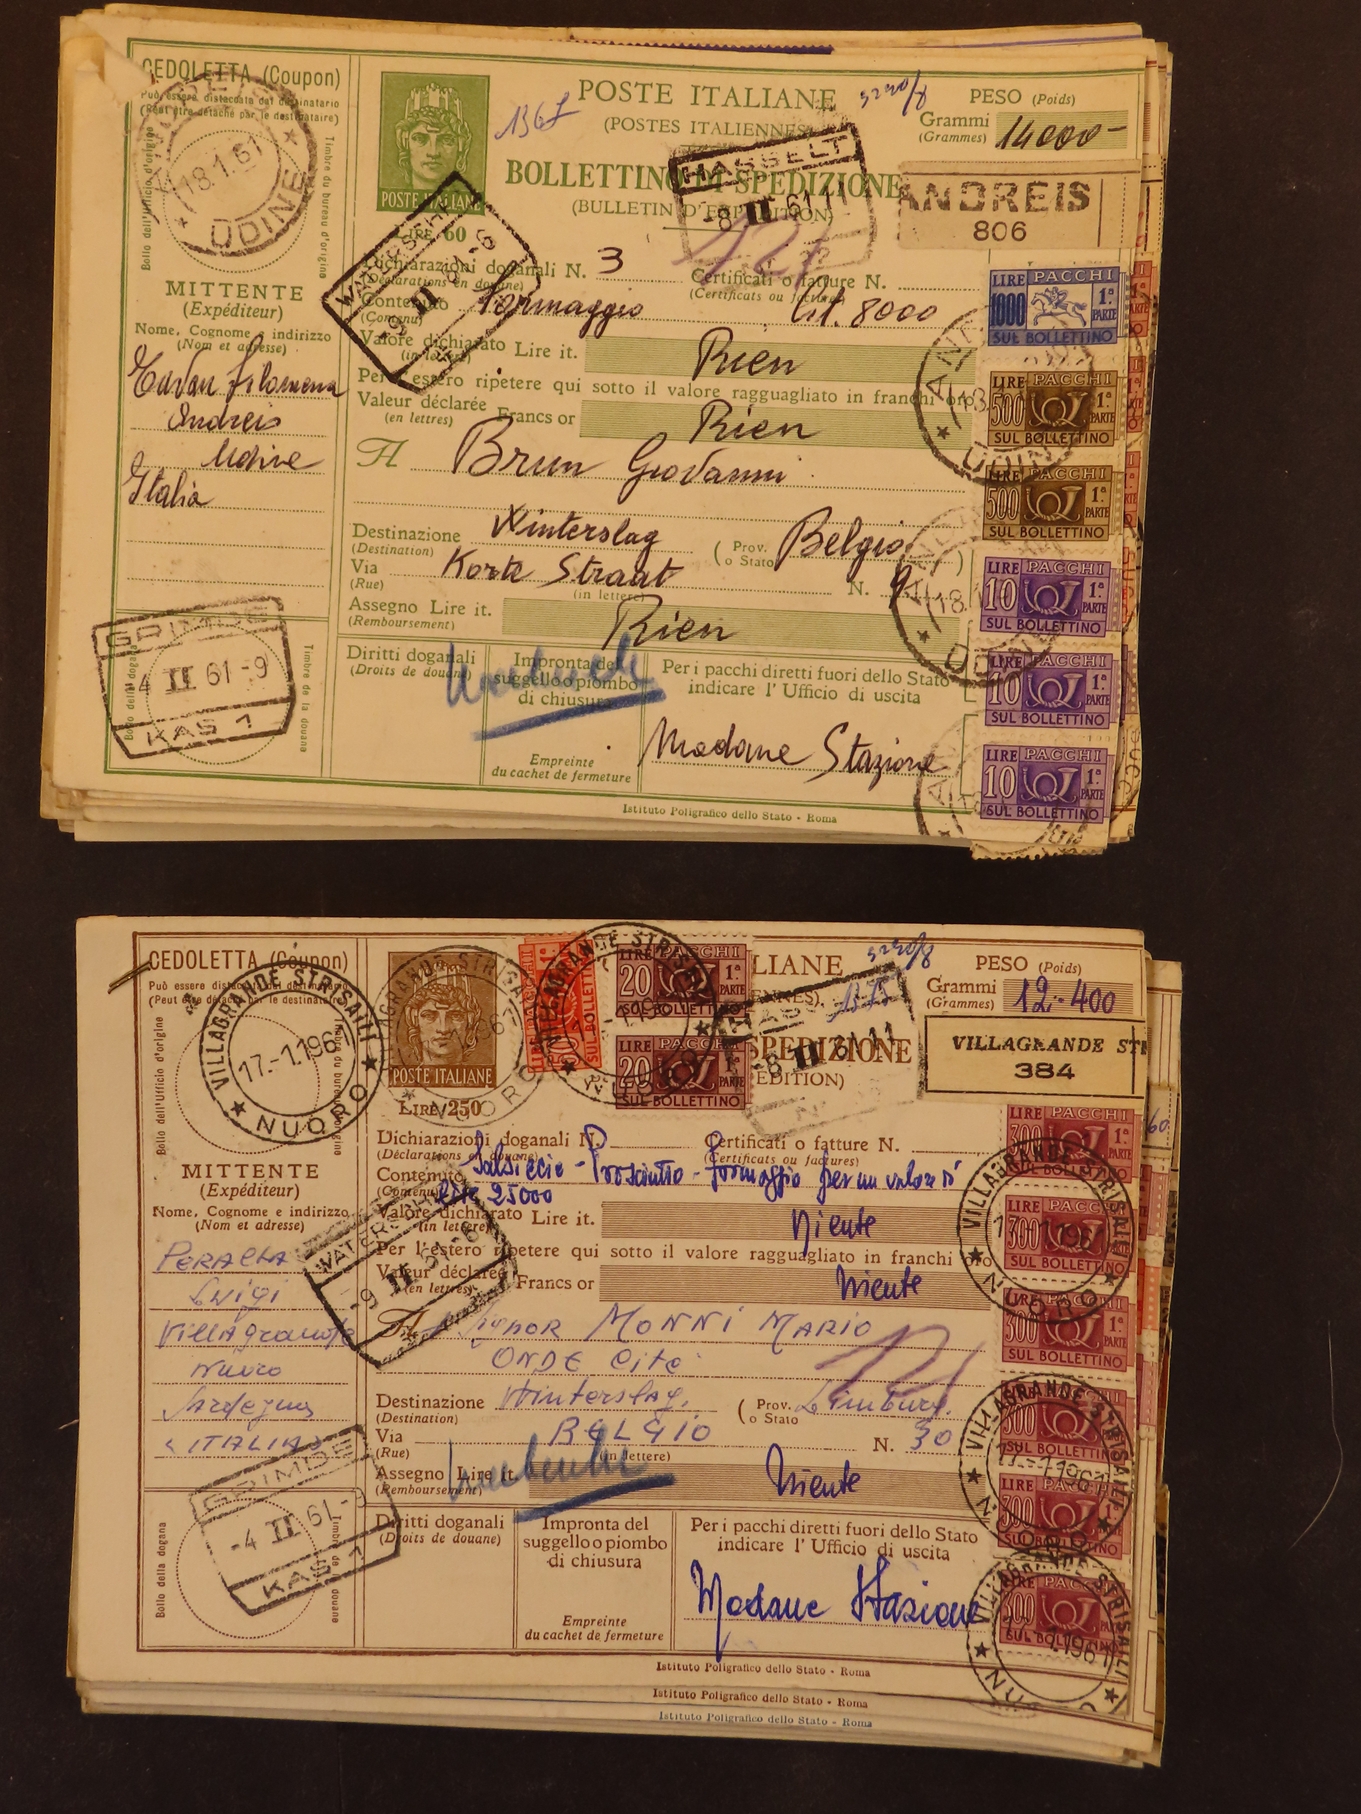 CEDOLETTA (Coupon)
Può essere distaccata dal destinatario
(Peut être detaché par le destinataire)
Bollo dell'Ufficio d'origine
Timbre du bureau d'origine
18.1.61
UDINE
POSTE ITALIANE
LIRE 60
136
POSTE ITALIANE
(POSTES ITALIENNES)
5290/8
PESO (Poids)
Grammi
(Grammes)
14000-
BOLLETTINO DI SPEDIZIONE
(BULLETIN D'EXPEDITION)
HASSELT
-8 II 61 11
ANDREIS
806
Dichiarazioni doganali N. 3
(Déclarations en douane)
Certificati o fatture N.
(Certificats ou factures)
Contenuto formaggio Lit. 8000
(Contenu)
Valore dichiarato Lire it. Rien
(in lettere)
Per l'estero ripetere qui sotto il valore ragguagliato in franchi oro
Valeur déclarée Francs or Rien
(en lettres)
MITTENTE
(Expéditeur)
Nome, Cognome e indirizzo
(Nom et adresse)
Filomena
Andreis
Udine
Italia
A Brun Giovanni
Destinazione Winterslag
(Destination)
(Prov. o Stato Belgio)
Via Korte Straat N. 9
(Rue)
(in lettere)
Assegno Lire it. Rien
(Remboursement)
GRIMDE
-4 II 61-9
KAS 1
Bollo della dogana
Timbre de la douane
Diritti doganali
(Droits de douane)
Impronta del
suggello o piombo
di chiusura
Empreinte
du cachet de fermeture
Per i pacchi diretti fuori dello Stato
indicare l'Ufficio di uscita
Modane Stazione
Istituto Poligrafico dello Stato - Roma
LIRE PACCHI
1000 1ª PARTE
SUL BOLLETTINO
LIRE PACCHI
500 1ª PARTE
SUL BOLLETTINO
LIRE PACCHI
500 1ª PARTE
SUL BOLLETTINO
LIRE PACCHI
10 1ª PARTE
SUL BOLLETTINO
LIRE PACCHI
10 1ª PARTE
SUL BOLLETTINO
LIRE PACCHI
10 1ª PARTE
SUL BOLLETTINO
CEDOLETTA (Coupon)
Può essere distaccata dal destinatario
(Peut être detaché par le destinataire)
Bollo dell'Ufficio d'origine
VILLAGRANDE STRISAILI
17.-1.196
NUORO
POSTE ITALIANE
LIRE 250
PACCHI
20 1ª
SUL BOLLETTINO
LIRE PACCHI
20 1ª PARTE
SUL BOLLETTINO
LIANE
5290/8
PESO (Poids)
Grammi
(Grammes)
12-400
SPEDIZIONE
HASSELT
-8 II 61 11
VILLAGRANDE ST
384
Dichiarazioni doganali N.
(Déclarations en douane)
Certificati o fatture N.
(Certificats ou factures)
Contenuto Salsiccie - Prosciutto - formaggio per un valore di
(Contenu) Lire 25000
Valore dichiarato Lire it. Niente
(in lettere)
Per l'estero ripetere qui sotto il valore ragguagliato in franchi oro
Valeur déclarée Francs or Niente
(en lettres)
MITTENTE
(Expéditeur)
Nome, Cognome e indirizzo
(Nom et adresse)
Luigi
Villagrande
Nuoro
Sardegna
(ITALIA)
WATERSCHEI
-9 II 61-8
A Signor MONNI MARIO
ONDE Cité
Destinazione Winterslag.
(Destination)
(Prov. o Stato Limburg.
Via BELGIO N. 30
(Rue)
(in lettere)
Assegno Lire it. Niente
(Remboursement)
GRIMDE
-4 II 61-9
KAS 1
Bollo della dogana
Timbre de la douane
Diritti doganali
(Droits de douane)
Impronta del
suggello o piombo
di chiusura
Empreinte
du cachet de fermeture
Per i pacchi diretti fuori dello Stato
indicare l'Ufficio di uscita
Modane Stazione
LIRE PACCHI
300 1ª PARTE
LIRE
300
SUL BOLLETTINO
LIRE
300
SUL BOLLETTINO
300
SUL BOLLETTINO
300
SUL BOLLETTINO
300
SUL BOLLETTINO
Istituto Poligrafico dello Stato - Roma
Istituto Poligrafico dello Stato - Roma
Istituto Poligrafico dello Stato - Roma